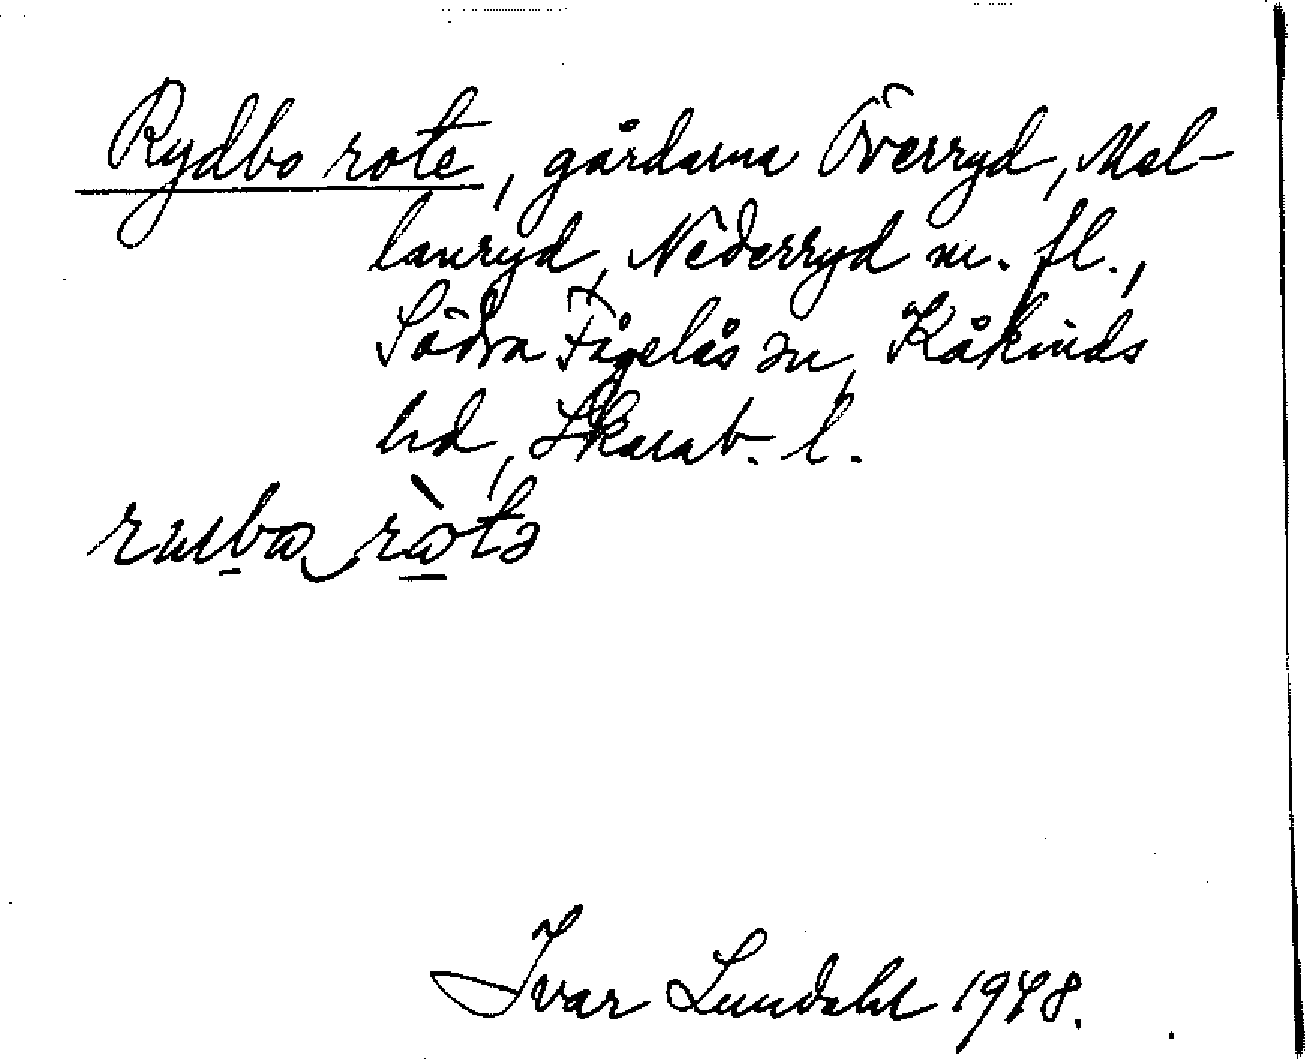 Rydbo rote, gårdarna Överryd, Mel-
lanryd, Nederryd m. fl.,
Södra Fågelås sn, Kåkinds
hd, Skarab. l.
Ivar Lundahl 1948.